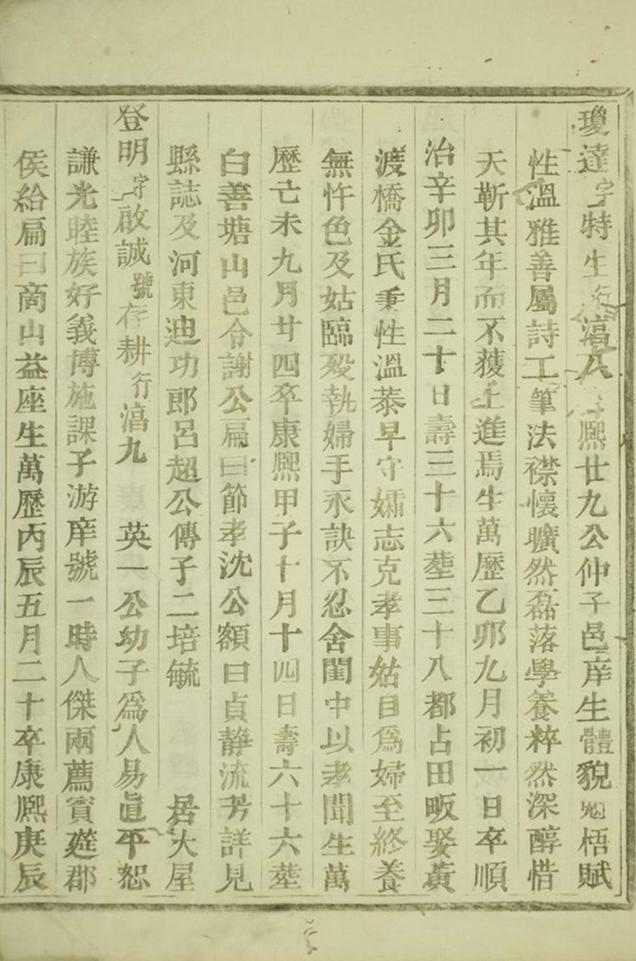 瓊達字特生行滈八熙廿九公仲子邑庠生體貌魁梧賦
性溫雅善屬詩工筆法襟懷曠然磊落學養粹然深醇惜
天靳其年而不獲上進焉生萬歷乙卯九月初一日卒順
治辛卯三月二十日壽三十六塟三十八都占田畈娶黃
渡橋金氏秉性溫恭早守孀志克孝事姑自為婦至終養
無忤色及姑臨歿執婦手永訣不忍舍閨中以孝聞生萬
歷己未九月廿四卒康熙甲子十月十四日壽六十六塟
白善塘山邑令謝公扁曰節孝沈公額曰貞静流芳詳見
縣誌及河東迪功郎呂超公傳子二培毓 居大屋
登明字啟誠號存耕行滈九 英一公幼子為人易直平恕
謙光睦族好義博施課子游庠號一時人傑兩薦賓筵郡
侯給扁曰啇山益座生萬歷丙辰五月二十卒康熙庚辰